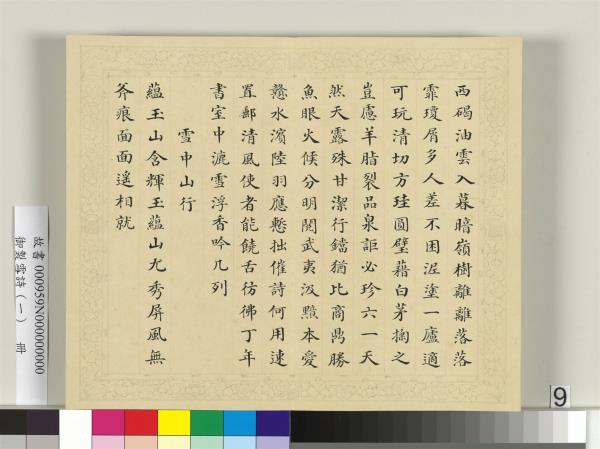 西碣油雲入暮暗嶺樹離離落落
霏瓊屑多人差不困泥塗一廬適
可玩清切方珪圓璧藉白茅掬之
豈慮羊脂裂品泉詎必珍六一天
然天露殊甘潔行鐺猶比商鼎勝
魚眼火候分明閱武夷汲黯本愛
戇水濱陸羽應慙拙催詩何用速
置郵清風使者能饒舌彷彿丁年
書室中漉雪浮香吟几列
雪中山行
蘊玉山含輝玉蘊山尤秀屏風無
斧痕面面遙相就
故書 000959N000000000
御製雪詩(一) 冊
9